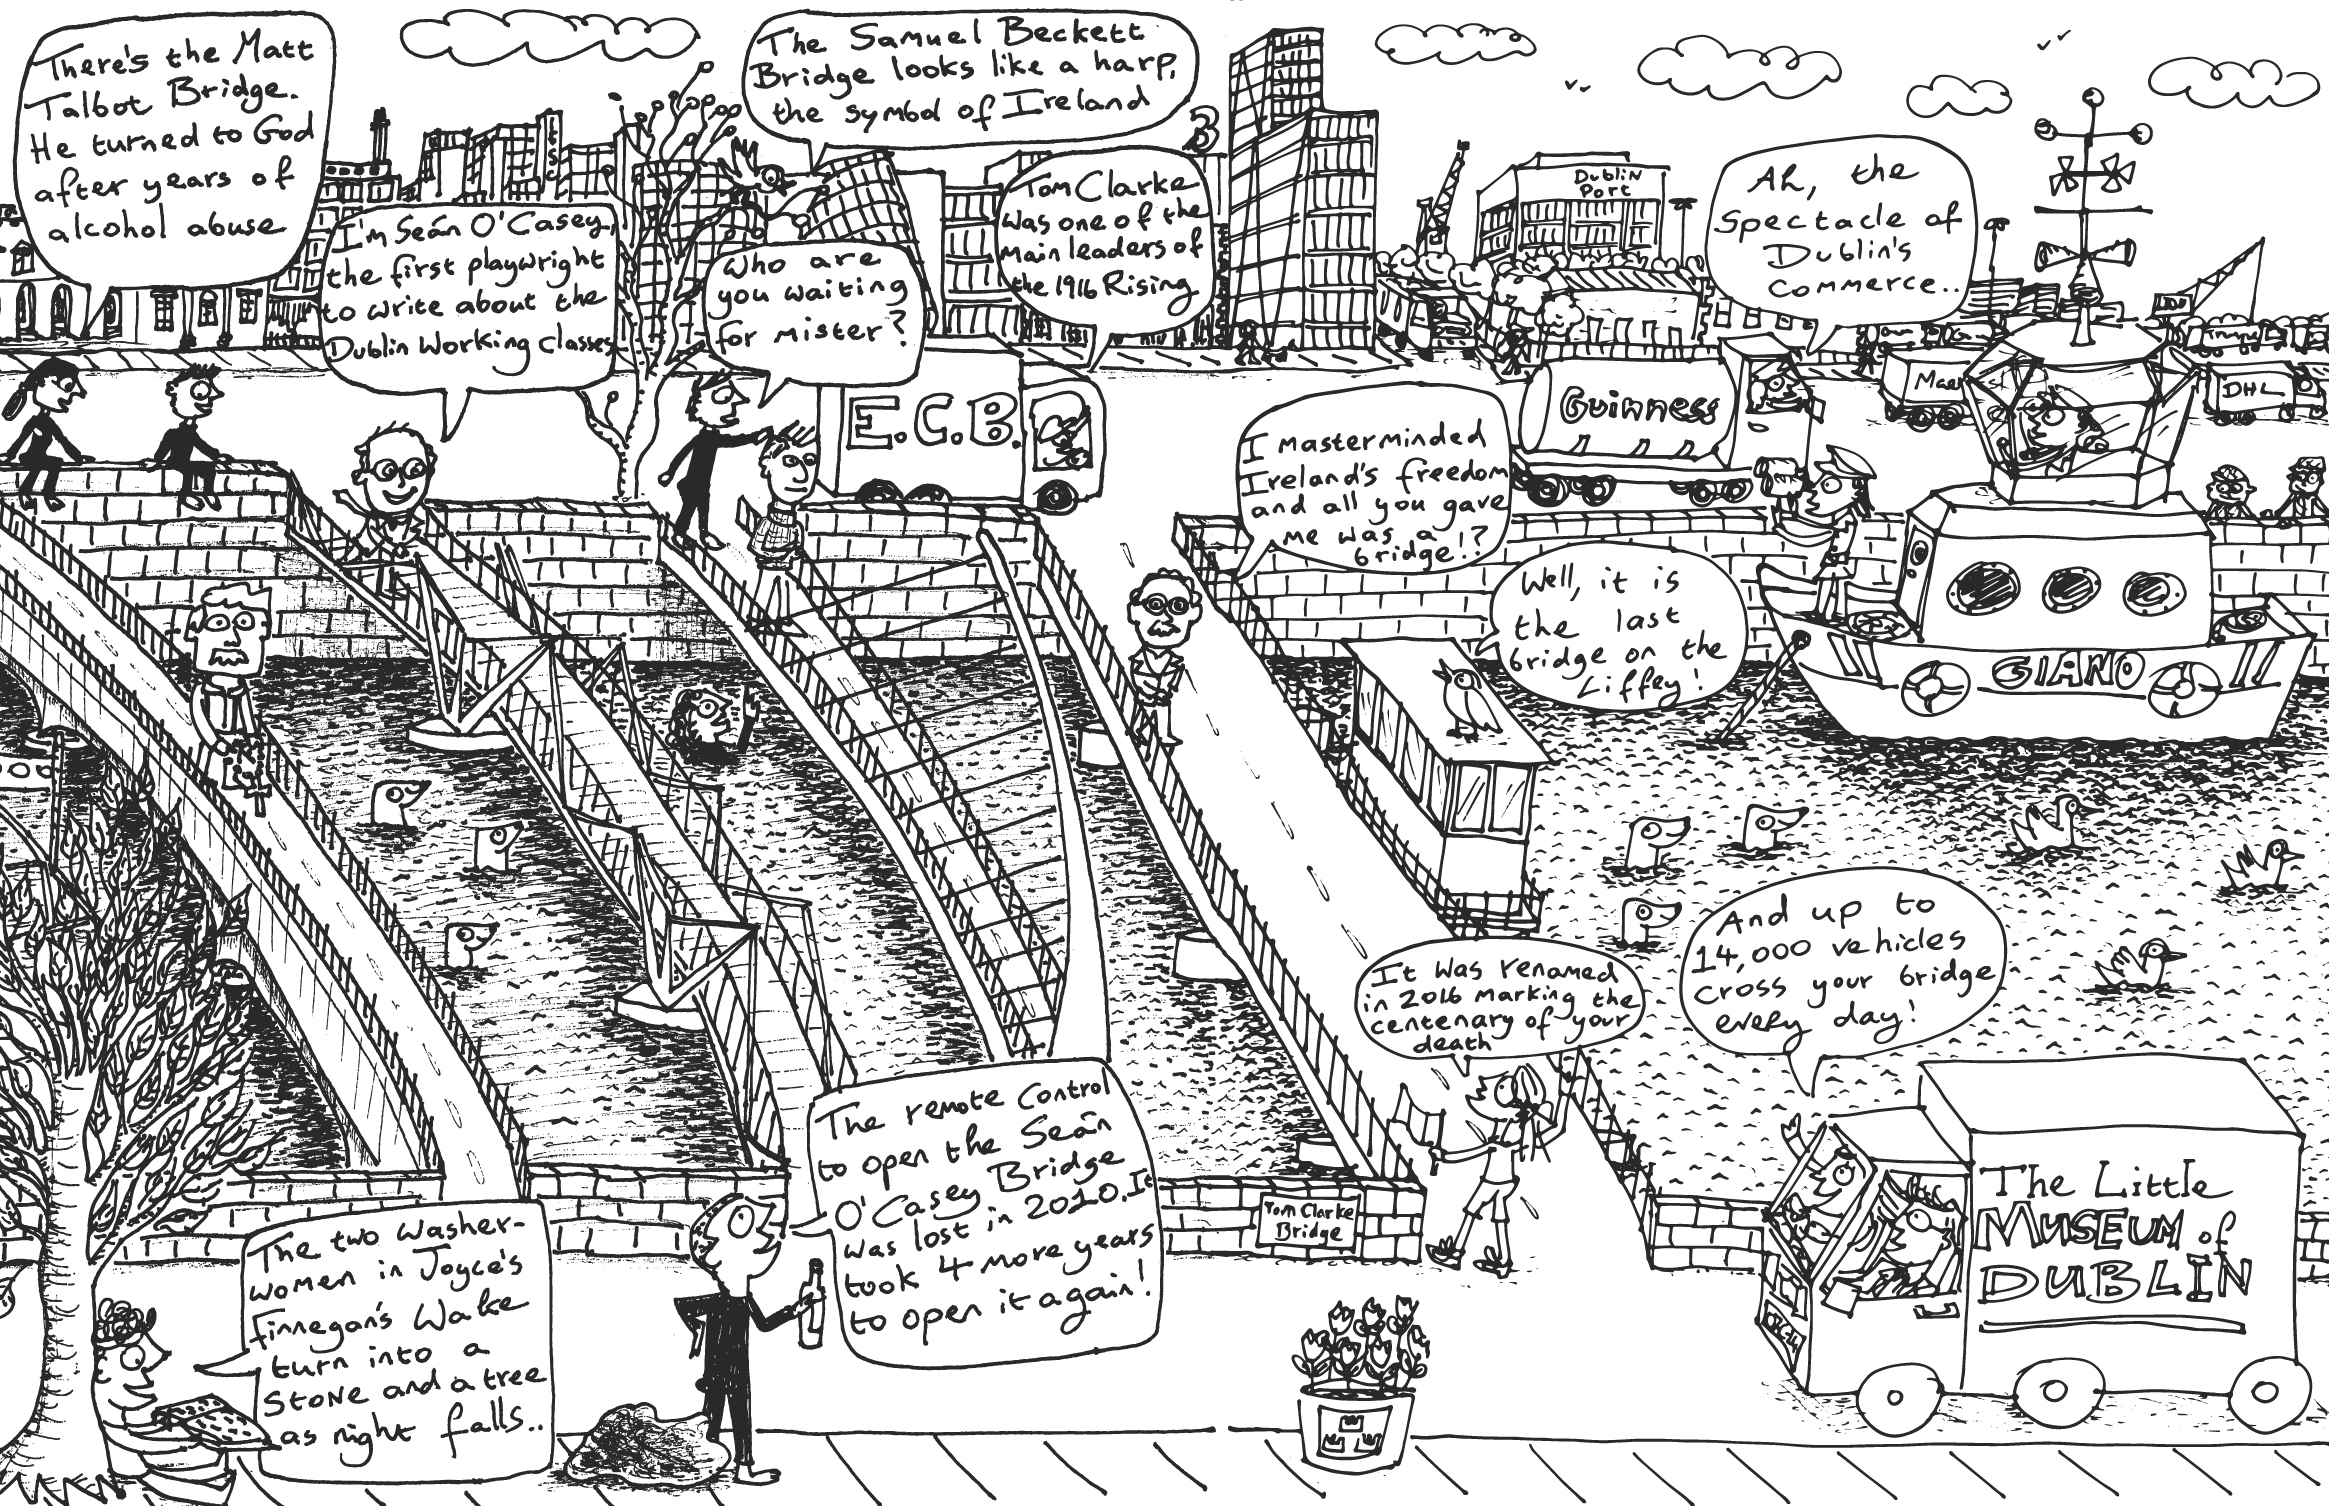 There's the Matt
Talbot Bridge.
He turned to God
after years of
alcohol abuse
I'm Seán O'Casey,
the first playwright
to write about the
Dublin Working Classes
The Samuel Beckett
Bridge looks like a harp,
the symbol of Ireland
Who are
you waiting
for mister?
Tom Clarke
was one of the
main leaders of
the 1916 Rising
3
Dublin
Port
Ah, the
spectacle of
Dublin's
commerce..
E.C.B.
Guinness
DHL
I masterminded
Ireland's freedom
and all you gave
me was a
bridge!?
Well, it is
the last
bridge on the
Liffey!
GIANO
It was renamed
in 2016 marking the
centenary of your
death
And up to
14,000 vehicles
cross your bridge
every day!
The remote control
to open the Seán
O'Casey Bridge
was lost in 2010. It
took 4 more years
to open it again!
Tom Clarke
Bridge
The two washer-
women in Joyce's
Finnegan's Wake
turn into a
stone and a tree
as night falls..
The Little
MUSEUM of
DUBLIN